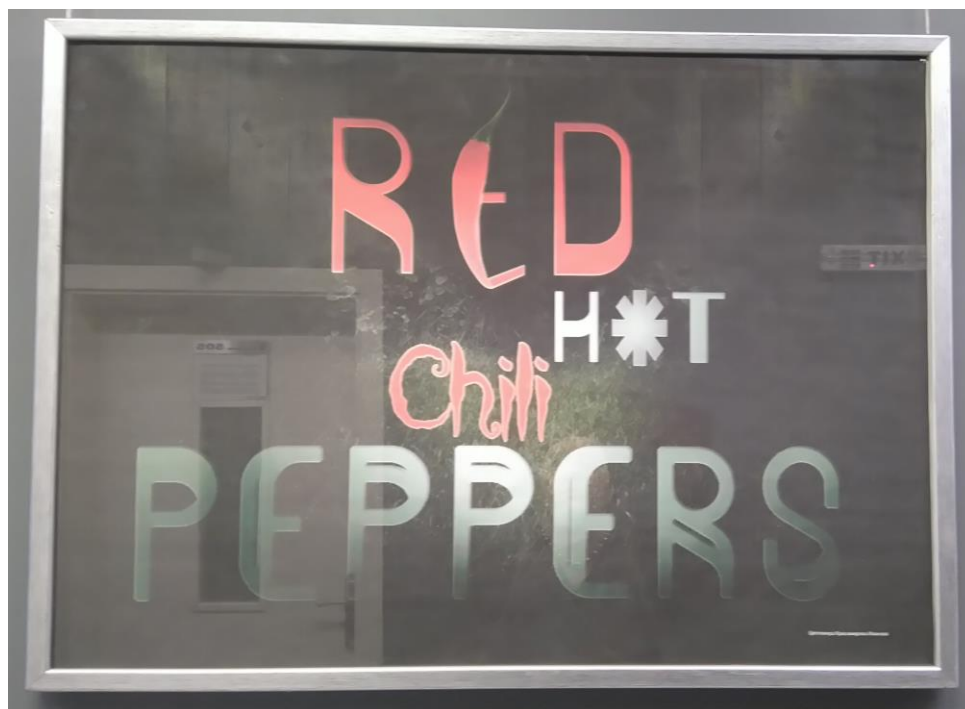 RED
H*T
Chili
PEPPERS